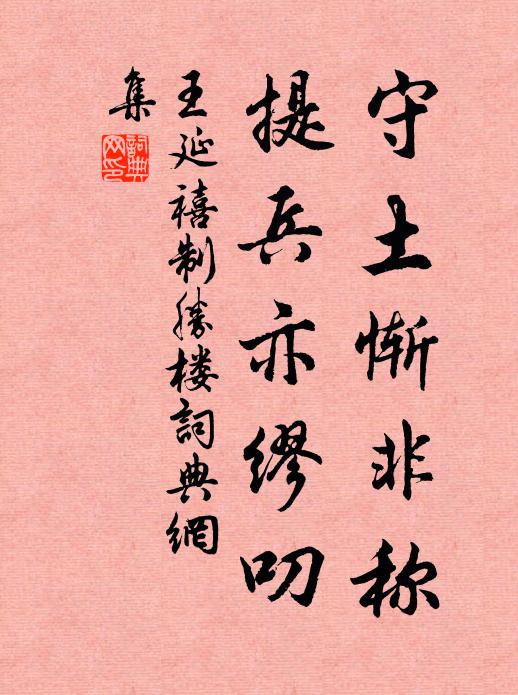 守土慚非称
提兵亦繆叨
王延禧制勝楼詞典網
集
詞典网印